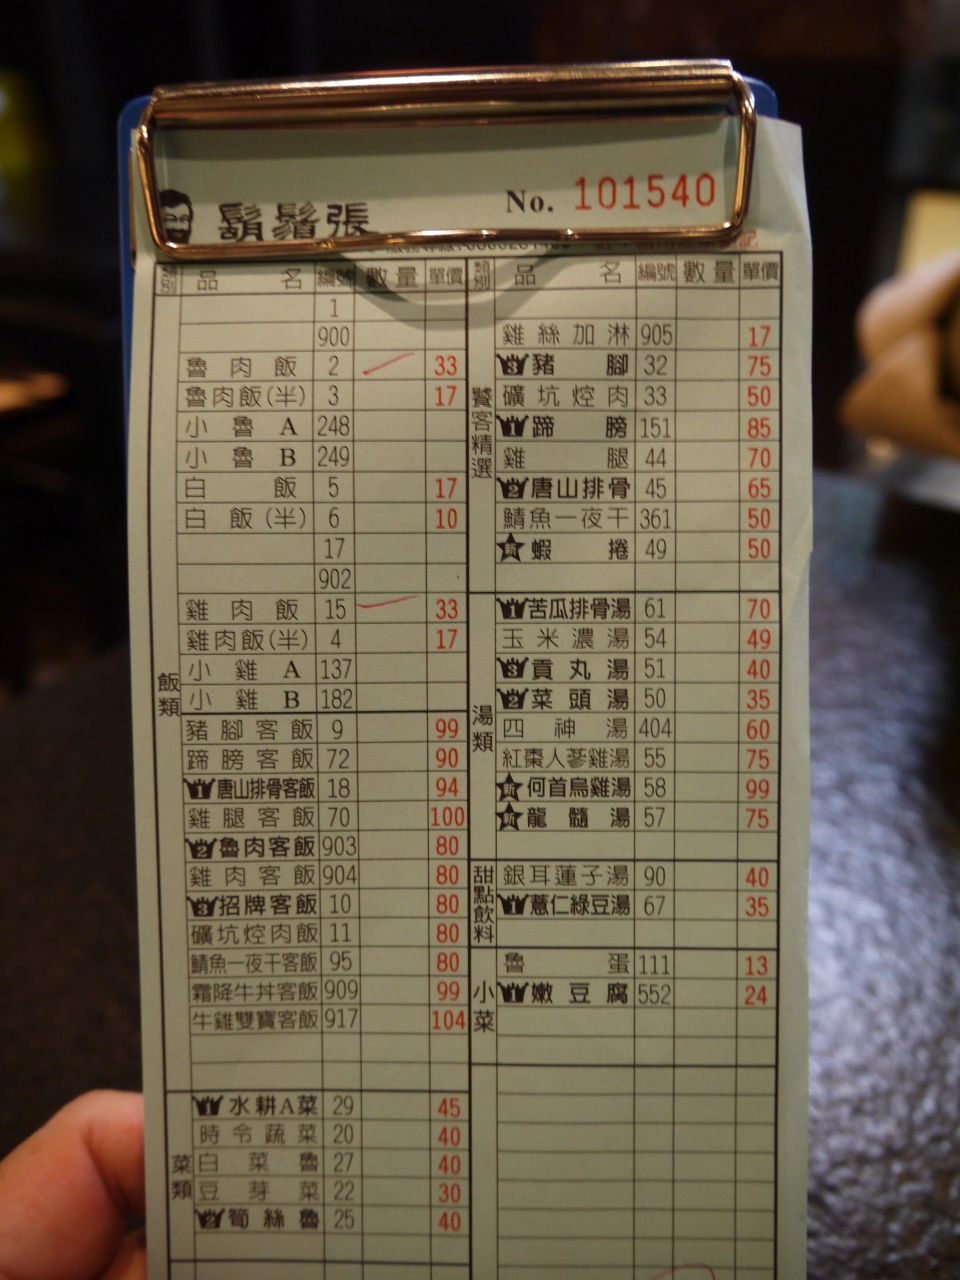 鬍鬚張
No. 101540
類別 品名 編號 數量 單價
1
900
魯肉飯 2 33
魯肉飯(半) 3 17
小魯A 248
小魯B 249
白飯 5 17
白飯(半) 6 10
17
902
雞肉飯 15 33
雞肉飯(半) 4 17
小雞A 137
小雞B 182
飯類
豬腳客飯 9 99
蹄膀客飯 72 90
1 唐山排骨客飯 18 94
雞腿客飯 70 100
2 魯肉客飯 903 80
雞肉客飯 904 80
3 招牌客飯 10 80
礦坑焢肉飯 11 80
鯖魚一夜干客飯 95 80
霜降牛丼客飯 909 99
牛雞雙寶客飯 917 104
菜類
1 水耕A菜 29 45
時令蔬菜 20 40
白菜魯 27 40
豆芽菜 22 30
2 筍絲魯 25 40
類別 品名 編號 數量 單價
饕客精選
雞絲加淋 905 17
3 豬腳 32 75
礦坑焢肉 33 50
1 蹄膀 151 85
雞腿 44 70
2 唐山排骨 45 65
鯖魚一夜干 361 50
新 蝦捲 49 50
湯類
1 苦瓜排骨湯 61 70
玉米濃湯 54 49
3 貢丸湯 51 40
2 菜頭湯 50 35
四神湯 404 60
紅棗人蔘雞湯 55 75
新 何首烏雞湯 58 99
新 龍髓湯 57 75
甜點飲料
銀耳蓮子湯 90 40
1 薏仁綠豆湯 67 35
小菜
魯蛋 111 13
1 嫩豆腐 552 24